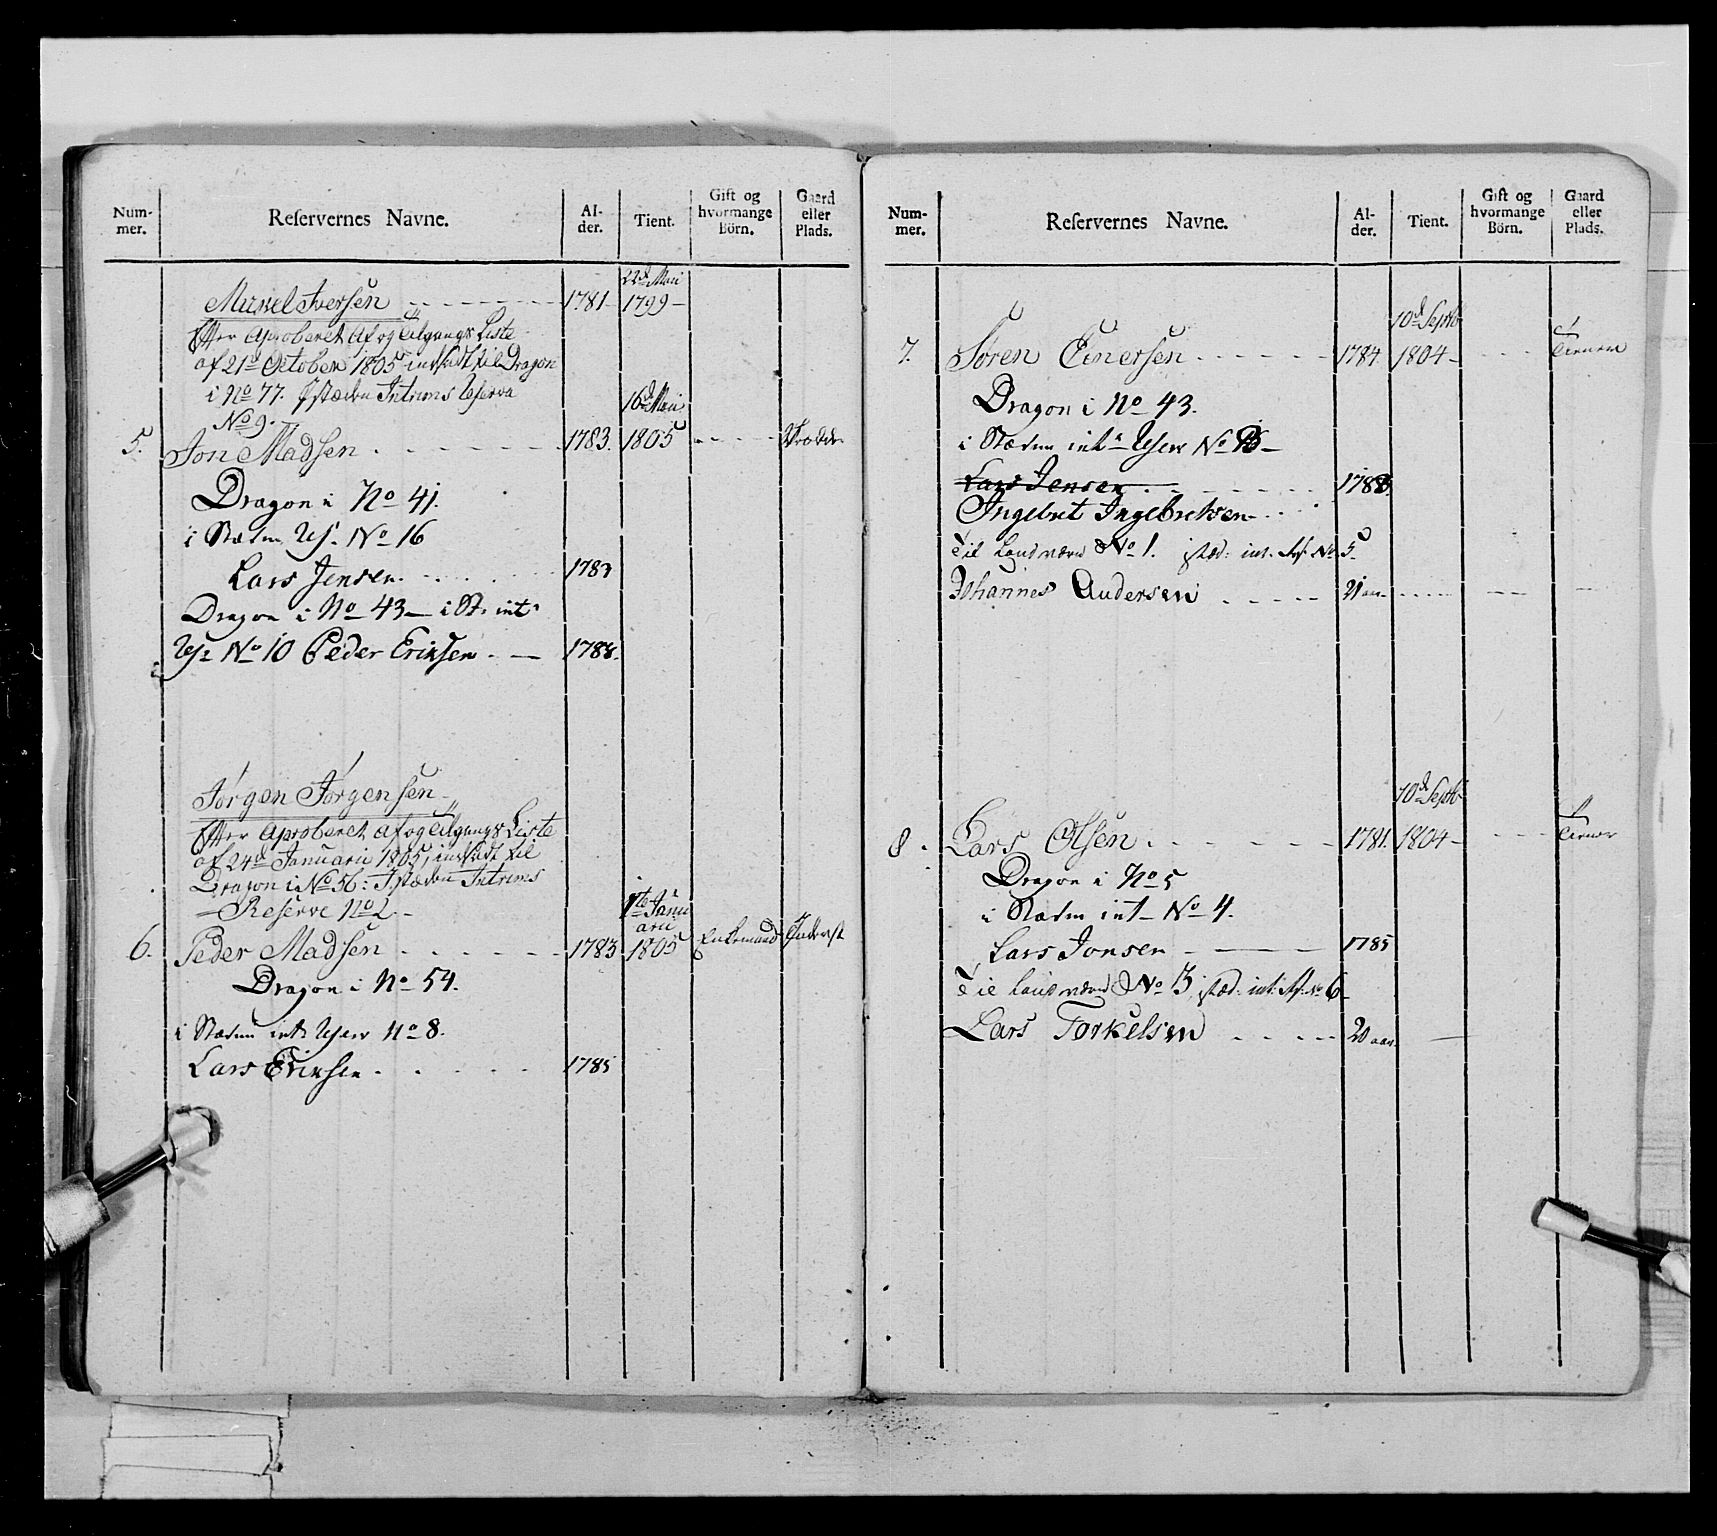 Num-
mer.
Reservernes Navne.
Al-
der.
Tient.
Gift og
hvormange
Börn.
Gaard
eller
Plads.
22d Mai
Iversen 1781 1799
Efter Aproberet Af og Tilgangs Liste
af 21d October 1805 indskudt til Dragon
i No 77. Istæden Intrims Reserve
No 9.
16d Mai
5. Jon Madsen 1783. 1805
Dragon i No 41.
i Stæden No 16
Lars Jensen 1783
Dragon i No 43 i St: int:
No 10 Peder Eriksen 1788
Jörgen Jörgensen
Efter Aproberet af og Tilgangs Liste
af 24d Januarii 1805, indskudt til
Dragon i No 56: Istæden Intrims
Reserve No 2
1te Janu
arii
6. Peder Madsen 1783 1805 Enkemand Inderst
Dragon i No 54.
i Stæden int: No 8.
Lars Eriksen 1785
Num-
mer.
Reservernes Navne.
Al-
der.
Tient.
Gift og
hvormange
Börn.
Gaard
eller
Plads.
10d Septb
7. Søren Einersen 1784 1804 Tienner
Dragon i No 43.
i Stæden int: No
Lars Jensen 1788
Ingebret Ingebretsen
Til Landværn No 1. istæd: int: No 5
Johannes Andersen 21 aar
10d Septb
8. Lars Olsen 1781. 1804 Tienner
Dragon i No 5
i Stæden int No 4.
Lars Jonsen 1785
Til Landværn No 3 istæd: int: No 6
Lars Torkelsen 20 aar